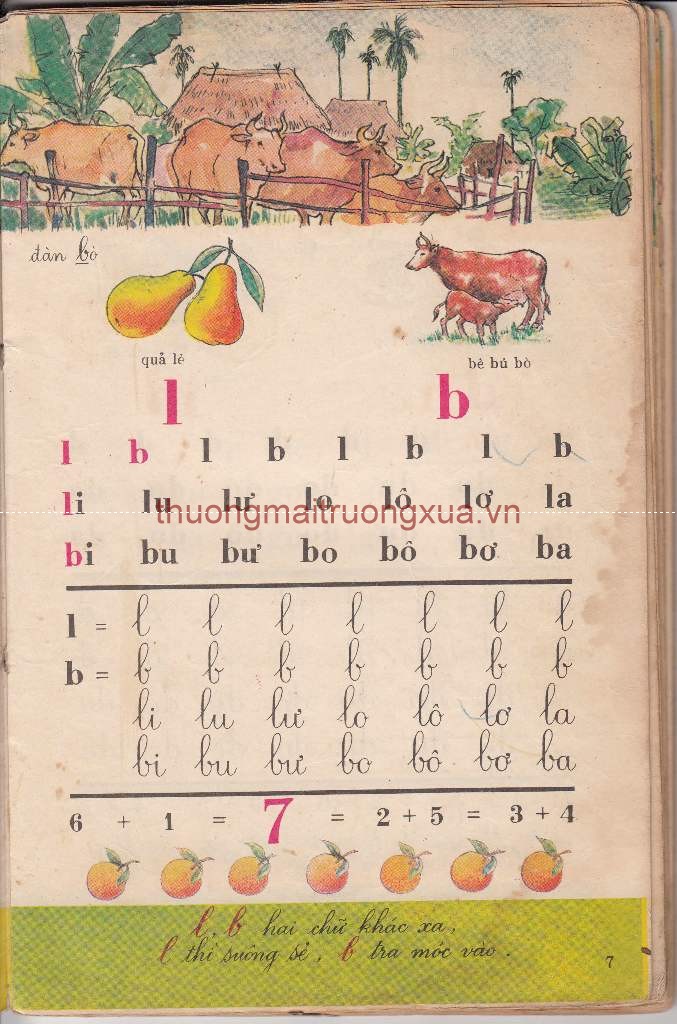 đàn bò
quả lê
bê bú bò
l b
l b l b l b l b
li lu lư lo lô lơ la
thuongmaitruongxua.vn
bi bu bư bo bô bơ ba
l = l l l l l l l
b = b b b b b b b
li lu lư lo lô lơ la
bi bu bư bo bô bơ ba
6 + 1 = 7 = 2 + 5 = 3 + 4
l, b hai chữ khác xa,
l thì suông sẻ, b tra móc vào.
7